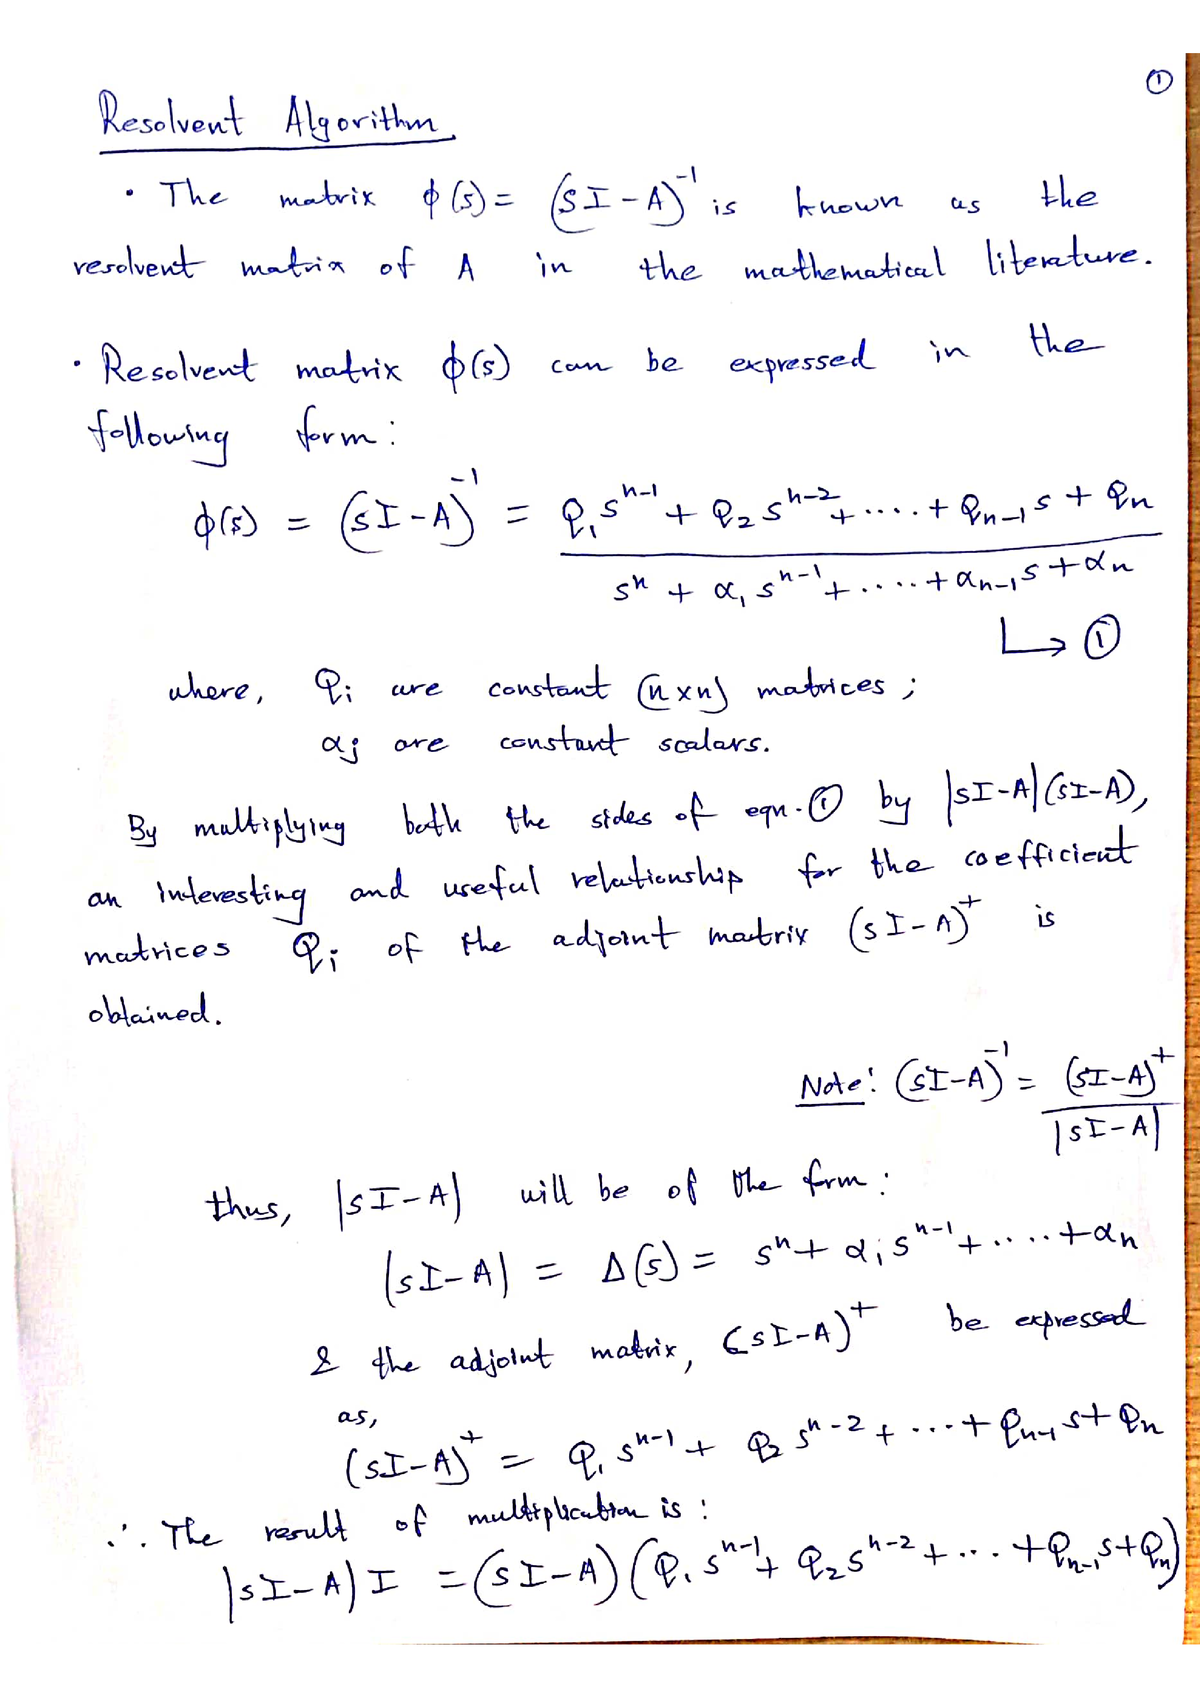 ①
Resolvent Algorithm
• The matrix ϕ(s) = (sI-A)⁻¹ is known as the
resolvent matrix of A in the mathematical literature.
• Resolvent matrix ϕ(s) can be expressed in the
following form:
ϕ(s) = (sI-A)⁻¹ = (Q₁sⁿ⁻¹ + Q₂sⁿ⁻² + ..... + Qₙ₋₁s + Qₙ) / (sⁿ + α₁sⁿ⁻¹ + ..... + αₙ₋₁s + αₙ)
↳ ①
where, Qᵢ are constant (n×n) matrices ;
αⱼ are constant scalars.
By multiplying both the sides of eqn.① by |sI-A|(sI-A),
an interesting and useful relationship for the coefficient
matrices Qᵢ of the adjoint matrix (sI-A)⁺ is
obtained.
Note: (sI-A)⁻¹ = (sI-A)⁺ / |sI-A|
thus, |sI-A| will be of the form:
|sI-A| = Δ(s) = sⁿ + αᵢsⁿ⁻¹ + ..... + αₙ
& the adjoint matrix, (sI-A)⁺ be expressed
as,
(sI-A)⁺ = Q₁sⁿ⁻¹ + Q₂sⁿ⁻² + ... + Qₙ₋₁s + Qₙ
∴ The result of multiplication is :
|sI-A| I = (sI-A)(Q₁sⁿ⁻¹ + Q₂sⁿ⁻² + ... + Qₙ₋₁s + Qₙ)